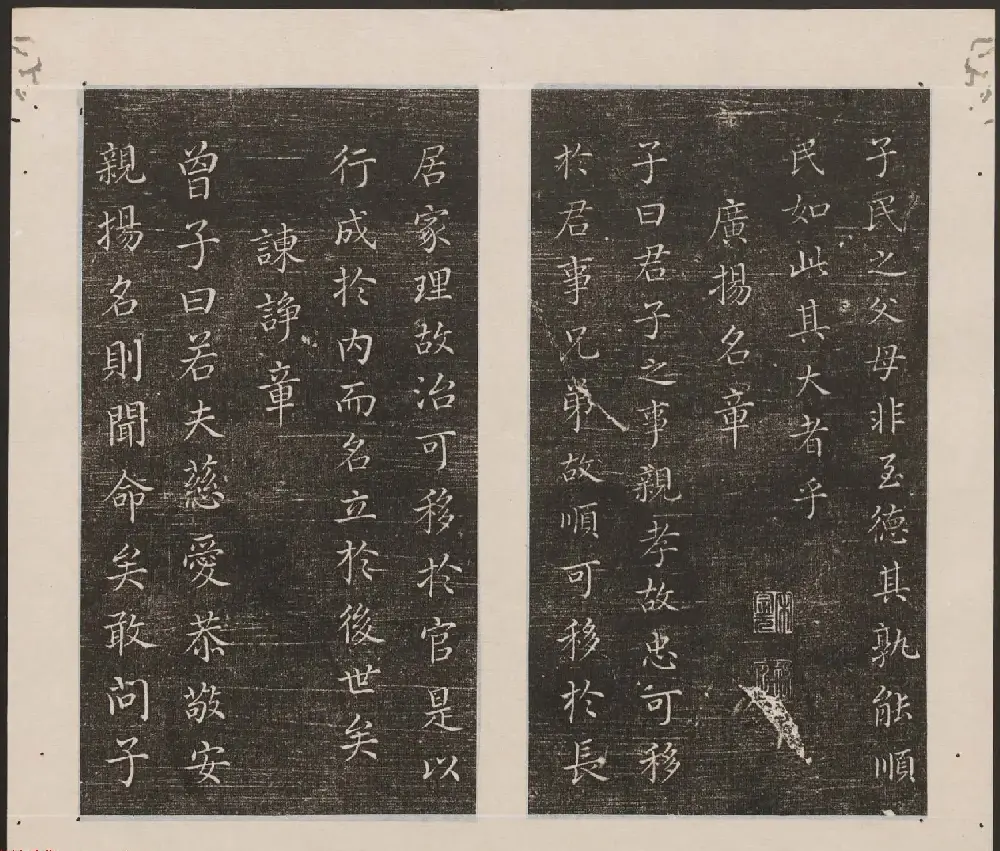 子民之父母非至德其孰能順
民如此其大者乎
廣揚名章
子曰君子之事親孝故忠可移
於君事兄弟故順可移於長
居家理故治可移於官是以
行成於内而名立於後世矣
諫諍章
曾子曰若夫慈愛恭敬安
親揚名則聞命矣敢問子